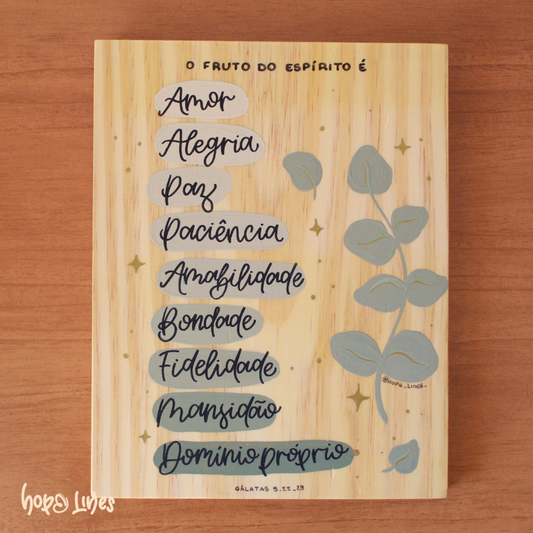 O FRUTO DO ESPÍRITO É
Amor
Alegria
Paz
Paciência
Amabilidade
Bondade
Fidelidade
Mansidão
Domínio próprio
@hope_lines_
GÁLATAS 5_22_23
hope Lines